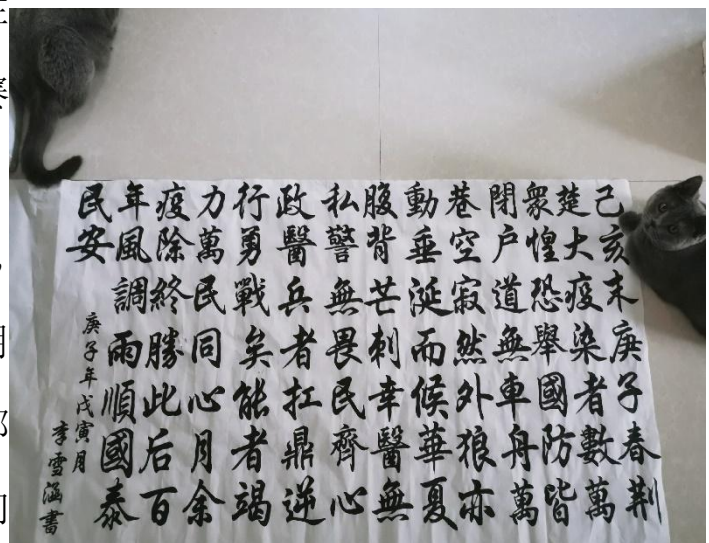 己亥末庚子春荆
楚大疫染者數萬
衆惶恐舉國防皆
閉户道無車舟萬
巷空寂然外狼亦
動垂涎而候華夏
腹背芒刺幸醫無
私警無畏民齊心
政醫兵者扛鼎逆
行勇戰矣能者竭
力萬民同心月余
疫除終勝此后百
年風調雨順國泰
民安
庚子年戊寅月
李雪涵書